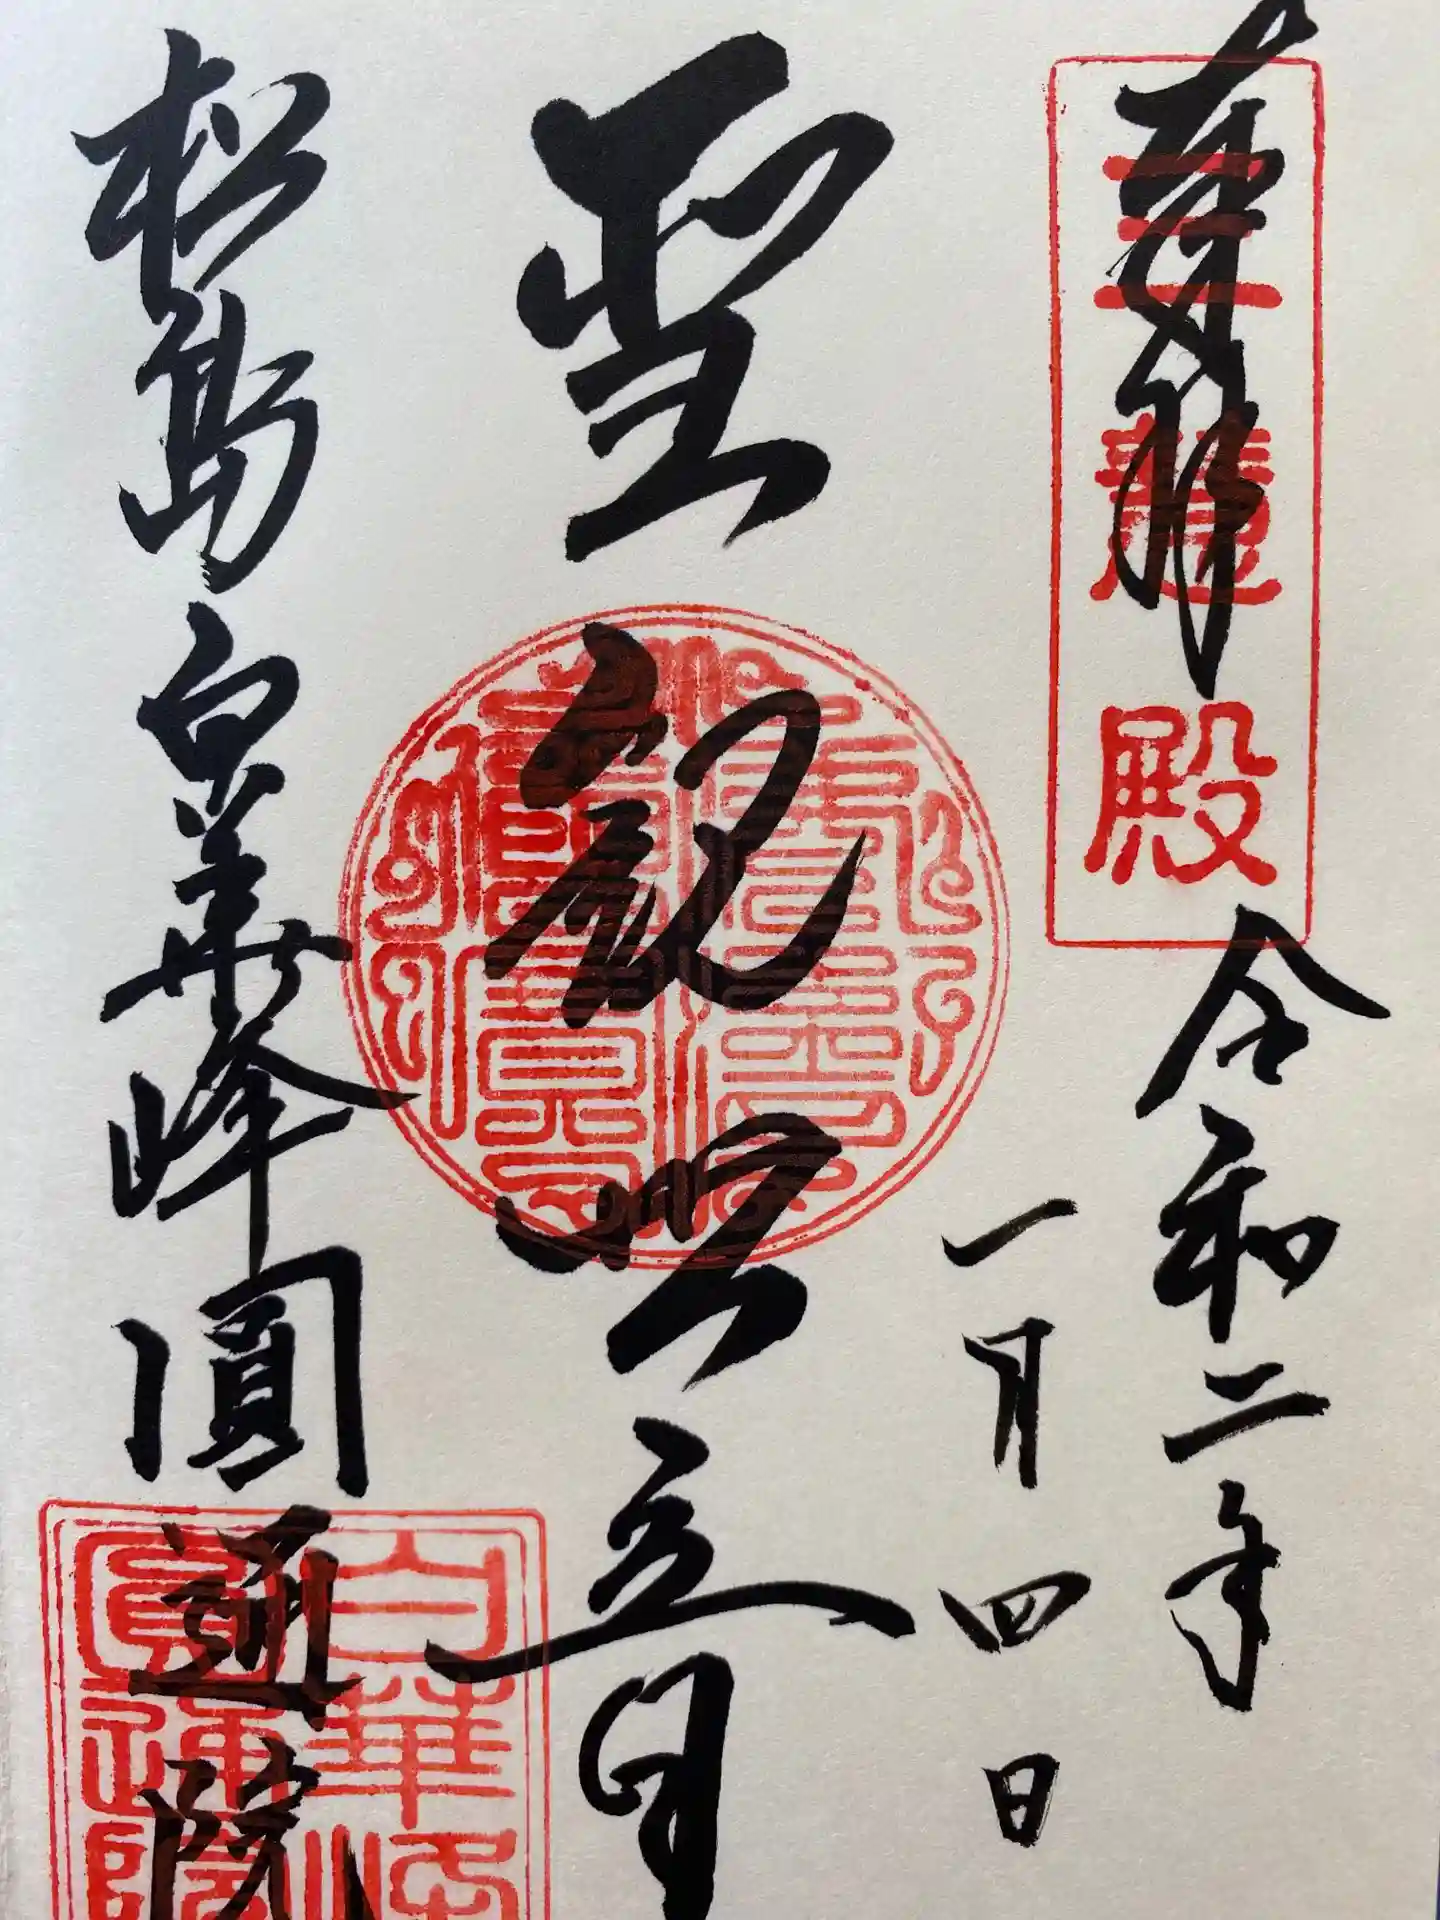 奉拝
三慧殿
令和二年
一月四日
聖観世音
松島白華峰圓通院
白華峰
圓通院